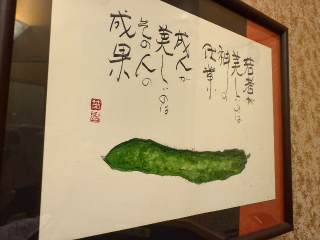 若者が
美しいのは
神しの
仕業
成人が
美しいのは
その人の
成果